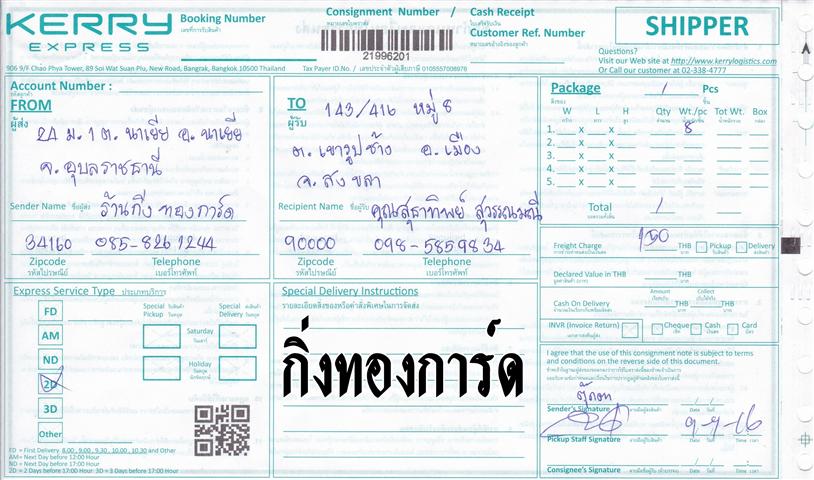 KERRY
EXPRESS
Booking Number
เลขที่การรับสินค้า
Consignment Number /
หมายเลขใบตราส่ง
21996201
Cash Receipt
ใบเสร็จรับเงิน
Customer Ref. Number
หมายเลขอ้างอิงของลูกค้า
SHIPPER
Questions?
Visit our Web site at http://www.kerrylogistics.com
Or Call our customer at 02-338-4777
906 9/F Chao Phya Tower, 89 Soi Wat Suan Plu, New Road, Bangrak, Bangkok 10500 Thailand
Tax Payer ID.No. / เลขประจำตัวผู้เสียภาษี 0105557008978
Account Number :
รหัสลูกค้า
FROM
ผู้ส่ง
24 ม.1 ต.นาเยีย อ.นาเยีย
จ.อุบลราชธานี
Sender Name ชื่อผู้ส่ง ร้านกิ่งทองการ์ด
34160 085-8261244
Zipcode Telephone
รหัสไปรษณีย์ เบอร์โทรศัพท์
TO
ผู้รับ
143/416 หมู่ 8
ต.เขารูปช้าง อ.เมือง
จ.สงขลา
Recipient Name ชื่อผู้รับ คุณสุธาทิพย์ สุวรรณมณี
90000 098-5859834
Zipcode Telephone
รหัสไปรษณีย์ เบอร์โทรศัพท์
Package 1 Pcs
สิ่งของ ชิ้น
W L H Qty Wt./pc Tot Wt. Box
กว้าง ยาว สูง จำนวน
1. x x 8
2. x x
3. x x
4. x x
5. x x
Total 1
Freight Charge THB Pickup Delivery
บาท
Declared Value in THB THB
บาท
Amount Collect
Cash On Delivery THB THB
บาท บาท
INVR (Invoice Return) Cheque Cash Card
เช็ค เงินสด บัตร
Express Service Type ประเภทบริการ
Special Pickup Special Delivery
FD
AM Saturday
วันเสาร์
ND Holiday
2D
3D
Other
FD = First Delivery 8.00 , 9.00 , 9.30 , 10.00 , 10.30 and Other
AM = Next Day before 12:00 Hour
ND = Next Day before 17:00 Hour
2D = 2 Days before 17:00 Hour 3D = 3 Days before 17:00 Hour
Special Delivery Instructions
รายละเอียดสิ่งของหรือคำสั่งพิเศษในการจัดส่ง
กิ่งทองการ์ด
I agree that the use of this consignment note is subject to terms
and conditions on the reverse side of this document.
Sender's Signature ลายมือชื่อผู้ส่ง Date วันที่
9-9-16
Pickup Staff Signature Date วันที่ Time เวลา
Consignee's Signature Date วันที่ Time เวลา